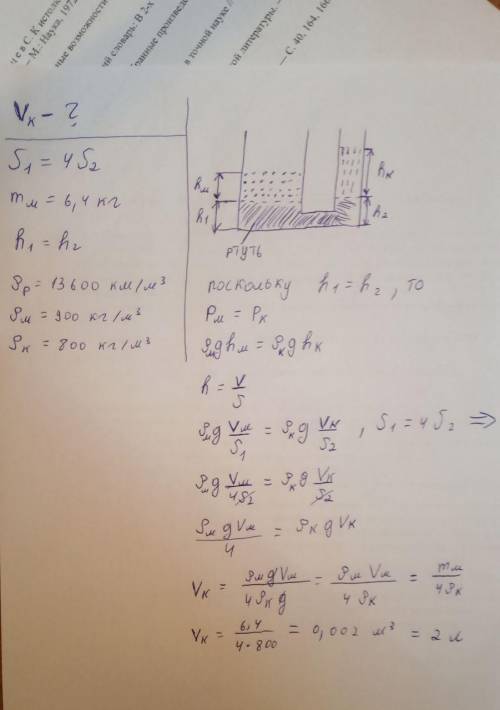 че в С. К истолк
– М.: Наука, 197
ные возможности
ий словарь: В 2-х
бранные произве
в точной науке //
ой литературы. –
– С. 40, 164, 166
Vк - ?
S1 = 4S2
mм = 6,4 кг
h1 = h2
ρр = 13600 км/м³
ρм = 900 кг/м³
ρк = 800 кг/м³
hм
h1
hк
h2
ртуть
поскольку h1 = h2, то
Pм = Pк
ρмghм = ρкghк
h = V/S
ρмg Vм/S1 = ρкg Vк/S2, S1 = 4S2 ⇒
ρмg Vм/4S2 = ρкg Vк/S2
ρмgVм/4 = ρкgVк
Vк = ρмgVм/4ρкg = ρмVм/4ρк = mм/4ρк
Vк = 6,4/4·800 = 0,002 м³ = 2 л